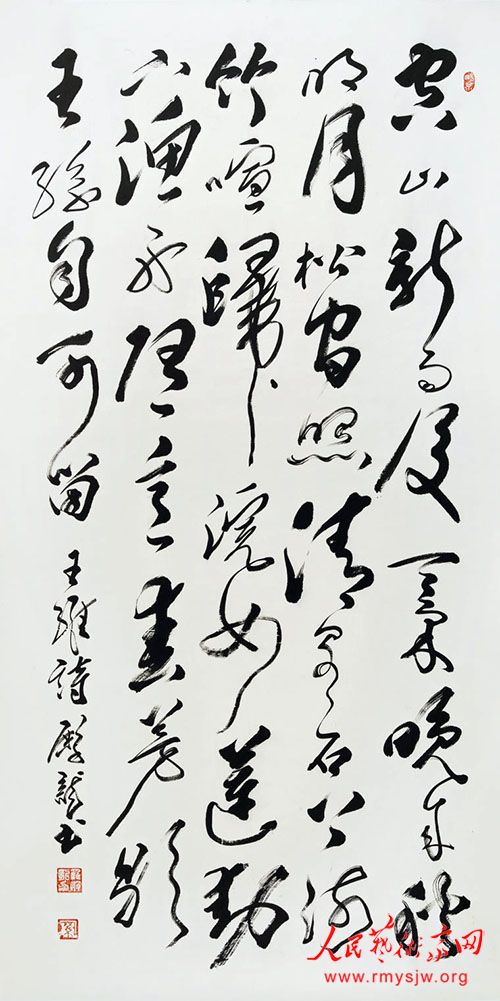 空山新雨後天氣晚來秋
明月松間照清泉石上流
竹喧歸浣女蓮動
下漁舟隨意春芳歇
王孫自可留 王維詩 书
人民藝術家网
www.rmysjw.org